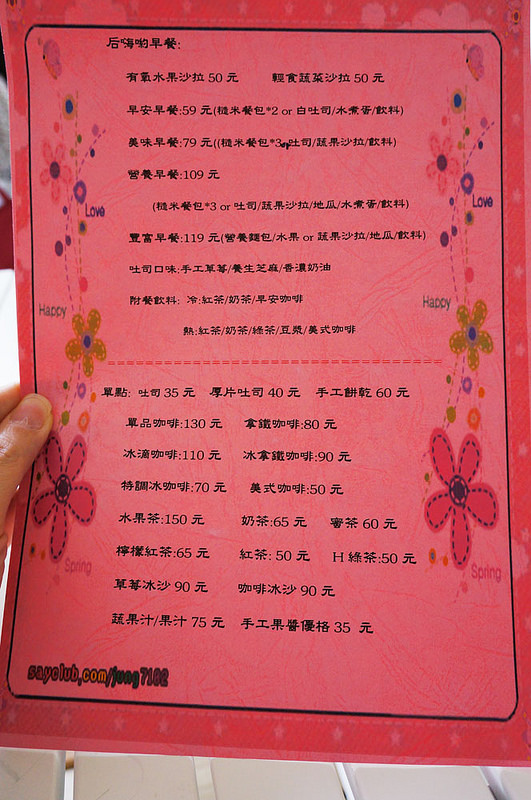 后嗨喲早餐:
有氧水果沙拉 50 元 輕食蔬菜沙拉 50 元
早安早餐:59 元(糙米餐包*2 or 白吐司/水煮蛋/飲料)
美味早餐:79 元((糙米餐包*3 吐司/蔬果沙拉/飲料)
營養早餐:109 元
(糙米餐包*3 or 吐司/蔬果沙拉/地瓜/水煮蛋/飲料)
Love
Love
豐富早餐:119 元(營養麵包/水果 or 蔬果沙拉/地瓜/飲料)
吐司口味:手工草莓/養生芝麻/香濃奶油
附餐飲料: 冷:紅茶/奶茶/早安咖啡
Happy
Happy
熱:紅茶/奶茶/綠茶/豆漿/美式咖啡
單點: 吐司 35 元 厚片吐司 40 元 手工餅乾 60 元
單品咖啡:130 元 拿鐵咖啡:80 元
冰滴咖啡:110 元 冰拿鐵咖啡:90 元
特調冰咖啡:70 元 美式咖啡:50 元
水果茶:150 元 奶茶:65 元 蜜茶 60 元
檸檬紅茶:65 元 紅茶: 50 元 H 綠茶:50 元
Spring
Spring
草莓冰沙 90 元 咖啡冰沙 90 元
蔬果汁/果汁 75 元 手工果醬優格 35 元
sayclub.com/jung7182